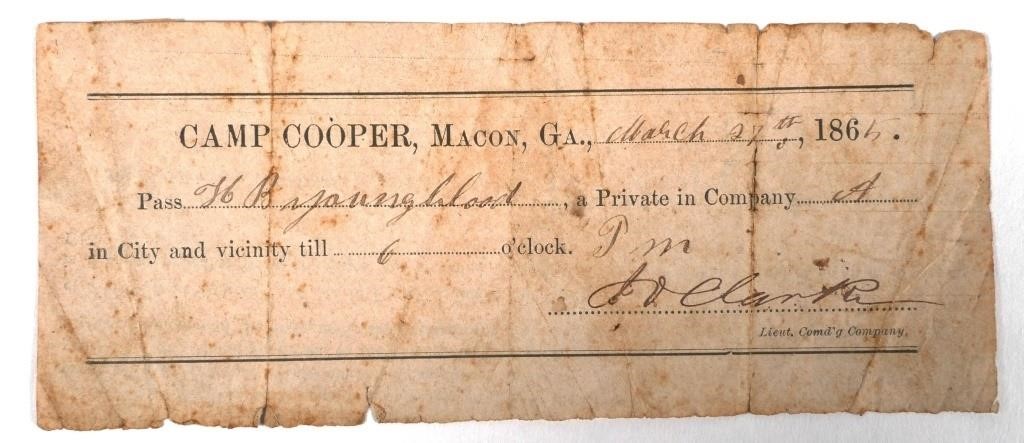 CAMP COOPER, MACON, GA., March 27th, 1865.
Pass H B youngblood, a Private in Company A
in City and vicinity till 6 o'clock. P m
Clarke
Lieut. Comd'g Company.